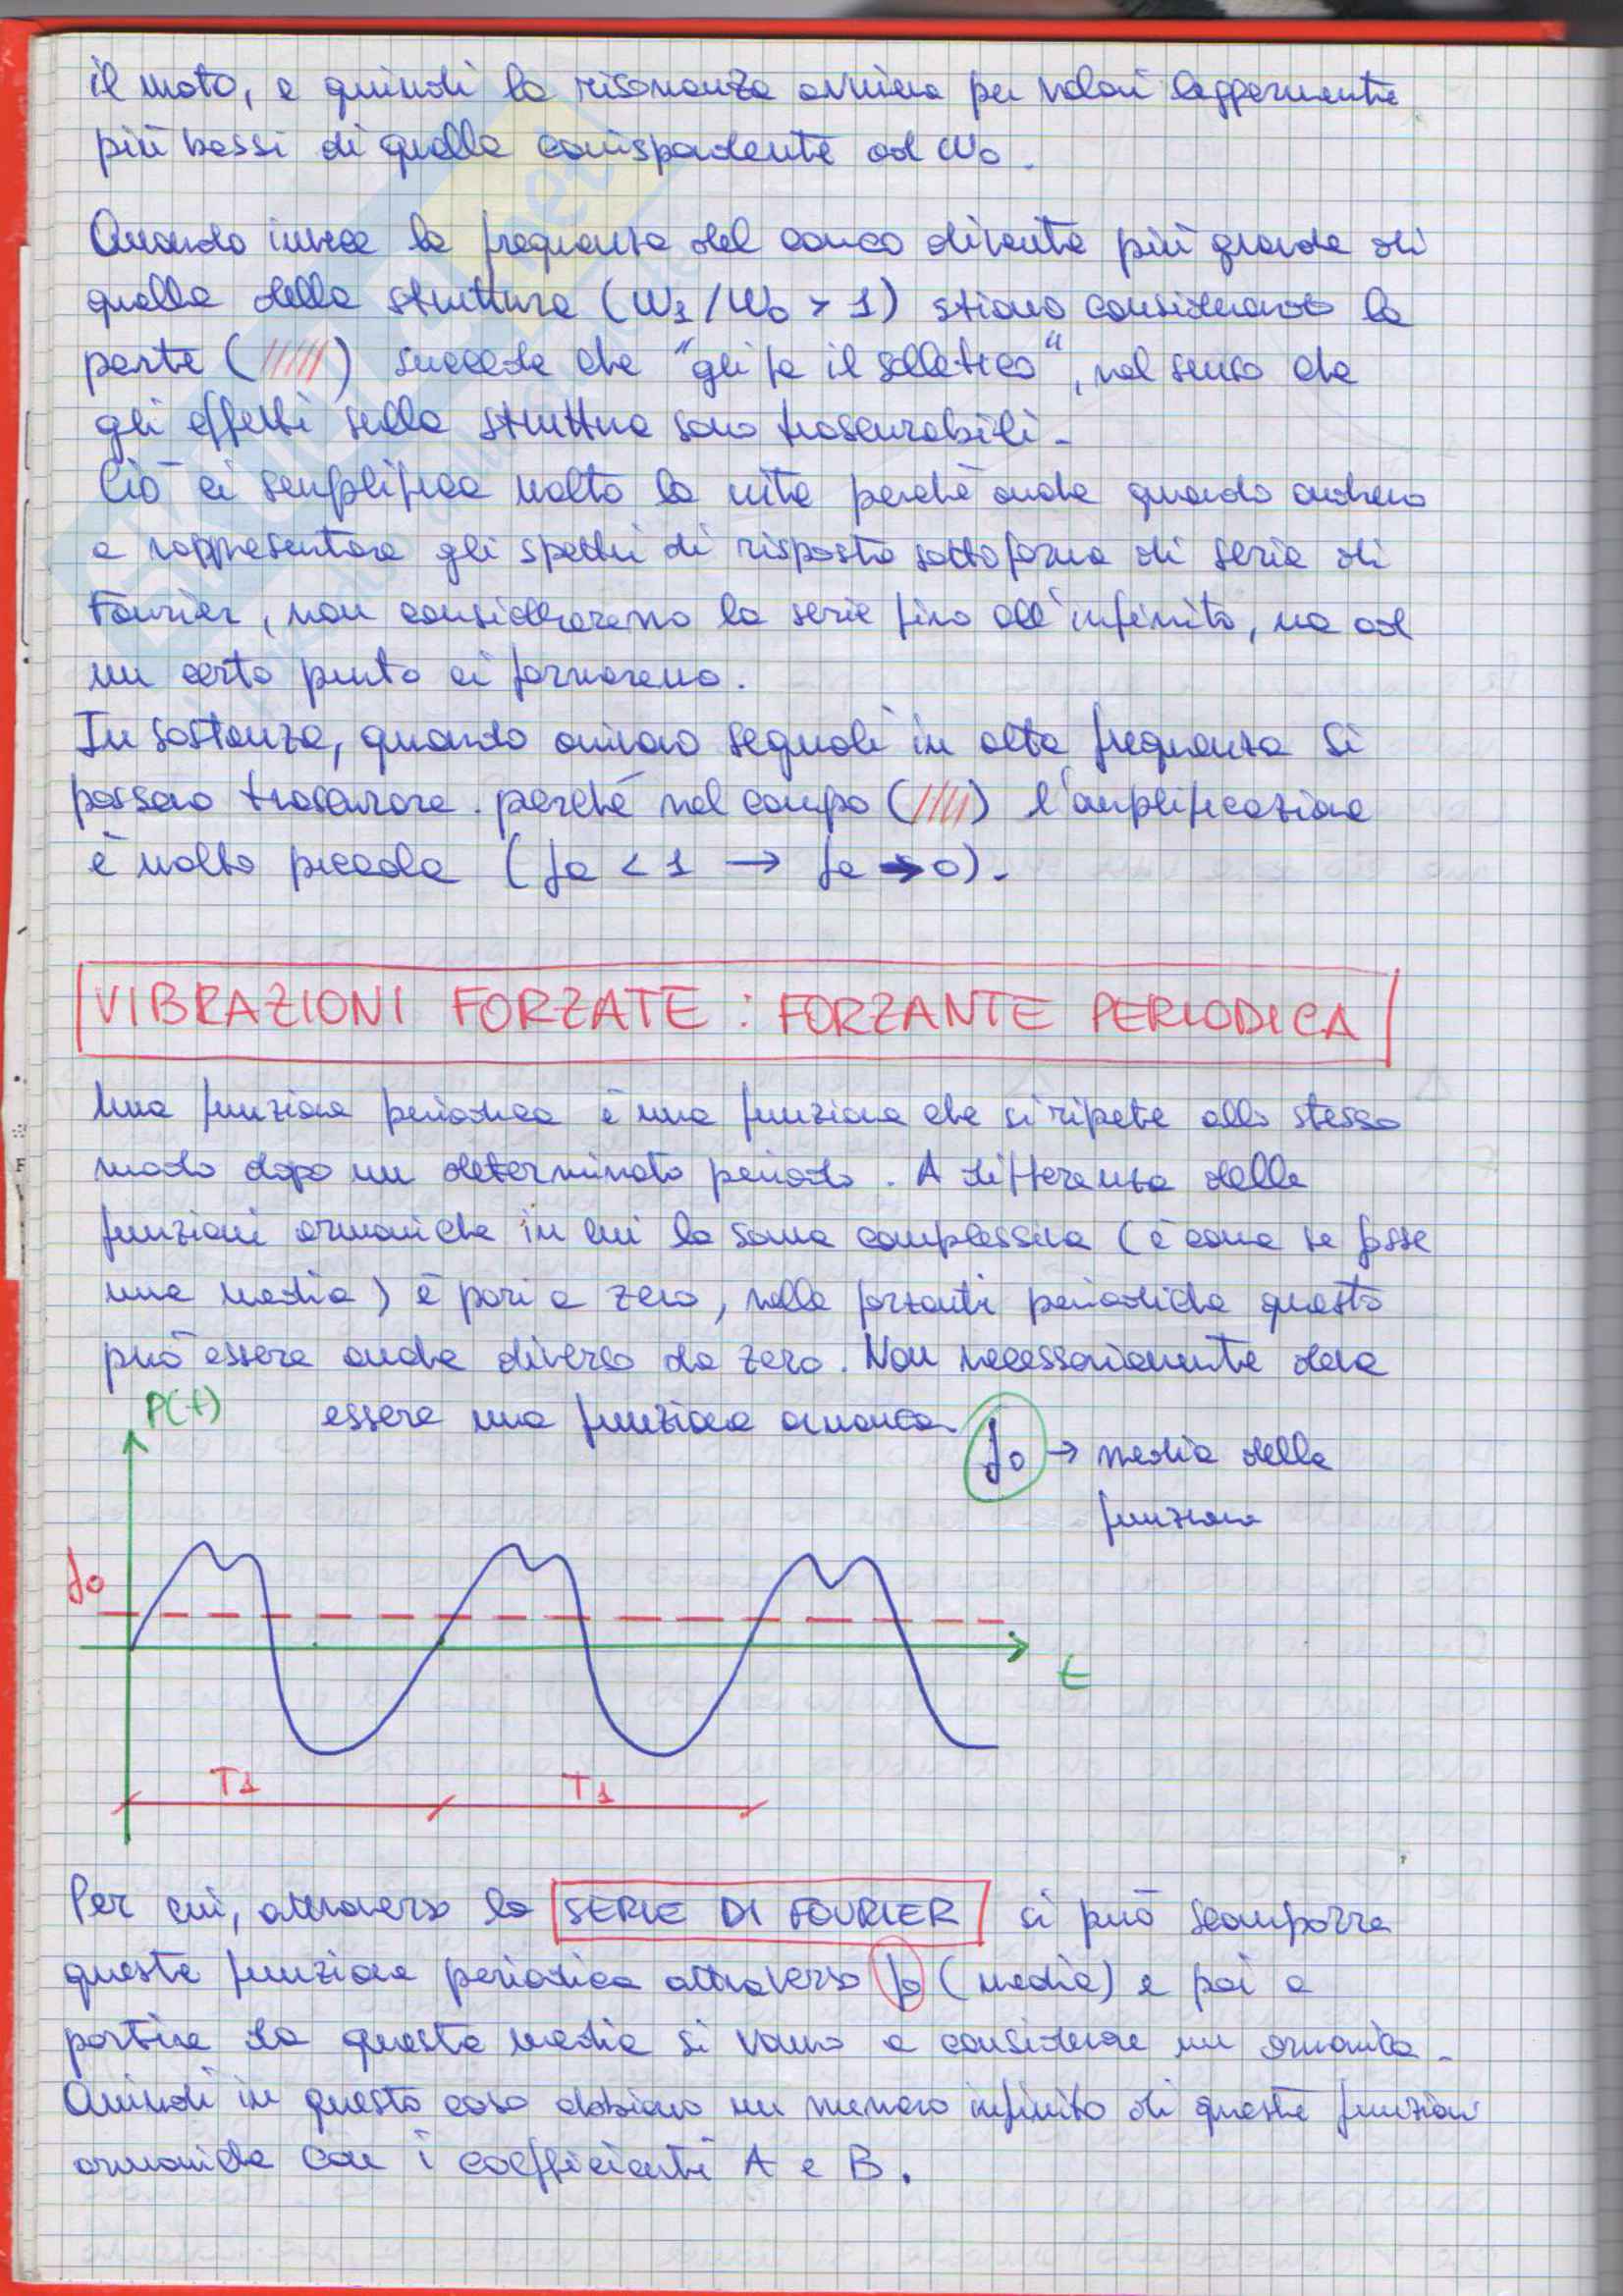 il moto, e quindi la risonanza avviene per valori leggermente
più bassi di quello corrispondente ad ω₀.
Quando invece la frequenza del carico diventa più grande di
quella della struttura (ω₁/ω₀ > 1) stiamo considerando la
parte (/////) succede che "gli fa il solletico", nel senso che
gli effetti sulla struttura sono trascurabili.
Ciò ci semplifica molto la vita perchè anche quando andremo
a rappresentare gli spettri di risposta sottoforma di serie di
Fourier, non considereremo la serie fino all'infinito, ma ad
un certo punto ci fermeremo.
In sostanza, quando avviano segnali in alta frequenza si
possono trascurare perchè nel campo (/////) l'amplificazione
è molto piccola (fa < 1 → fa → 0).
VIBRAZIONI FORZATE : FORZANTE PERIODICA
Una funzione periodica è una funzione che si ripete allo stesso
modo dopo un determinato periodo. A differenza delle
funzioni armoniche in cui la somma complessiva (è come se fosse
una media) è pari a zero, nelle forzanti periodiche questo
può essere anche diverso da zero. Non necessariamente deve
P(t) essere una funzione armonica.
f₀ → media della
funzione
f₀
t
T1 T1
Per cui, attraverso la SERIE DI FOURIER si può scomporre
questa funzione periodica attraverso f₀ (media) e poi a
partire da questa media si vanno a considerare un armonica.
Quindi in questo caso abbiamo un numero infinito di queste funzioni
armoniche con i coefficienti A e B.